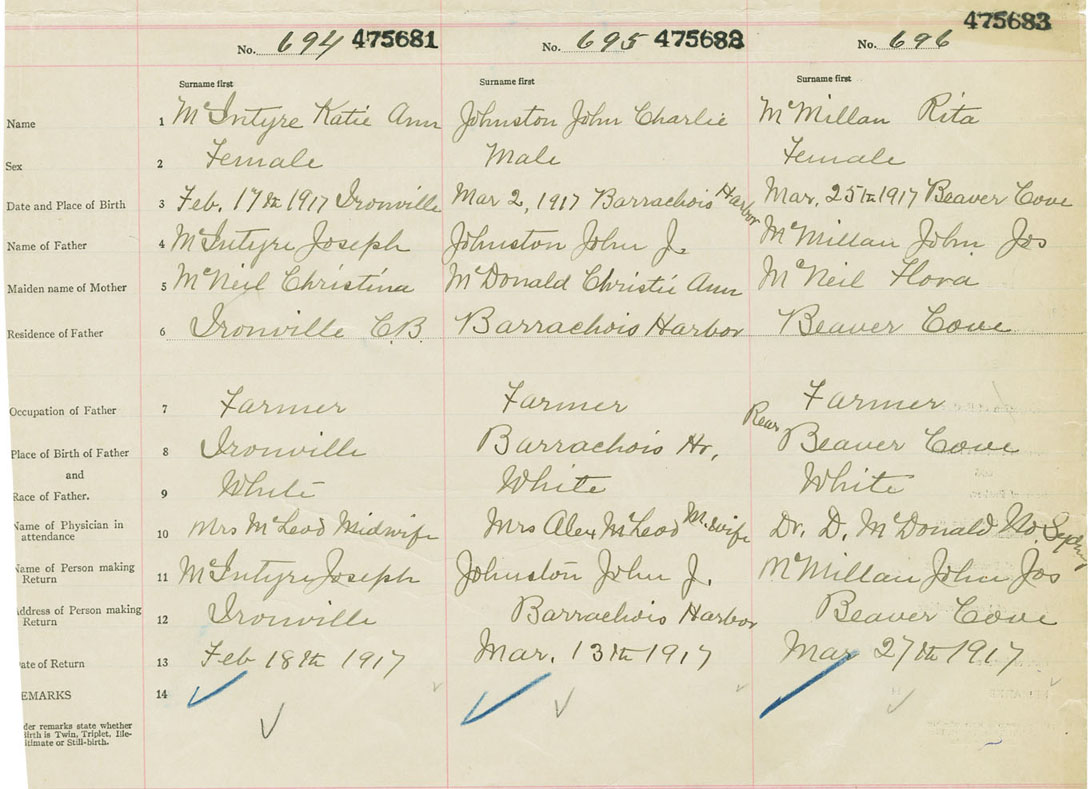 475683
No. 694 475681 No. 695 475682 No. 696
Surname first Surname first Surname first
Name 1 McIntyre Katie Ann Johnston John Charlie McMillan Rita
Sex 2 Female Male Female
Date and Place of Birth 3 Feb. 17th 1917 Ironville Mar 2, 1917 Barrachois Harbor Mar. 25th 1917 Beaver Cove
Name of Father 4 McIntyre Joseph Johnston John J. McMillan John Jos
Maiden name of Mother 5 McNeil Christina McDonald Christie Ann McNeil Flora
Residence of Father 6 Ironville C.B. Barrachois Harbor Beaver Cove
Occupation of Father 7 Farmer Farmer Farmer
Place of Birth of Father 8 Ironville Barrachois Hr. Rear Beaver Cove
and
Race of Father. 9 White White White
Name of Physician in
attendance 10 Mrs McLeod Midwife Mrs Alex McLeod Midwife Dr. D. McDonald
Name of Person making
Return 11 McIntyre Joseph Johnston John J. McMillan John Jos
Address of Person making
Return 12 Ironville Barrachois Harbor Beaver Cove
ate of Return 13 Feb 18th 1917 Mar. 13th 1917 Mar 27th 1917
EMARKS 14
der remarks state whether
irth is Twin, Triplet, Ille-
itimate or Still-birth.